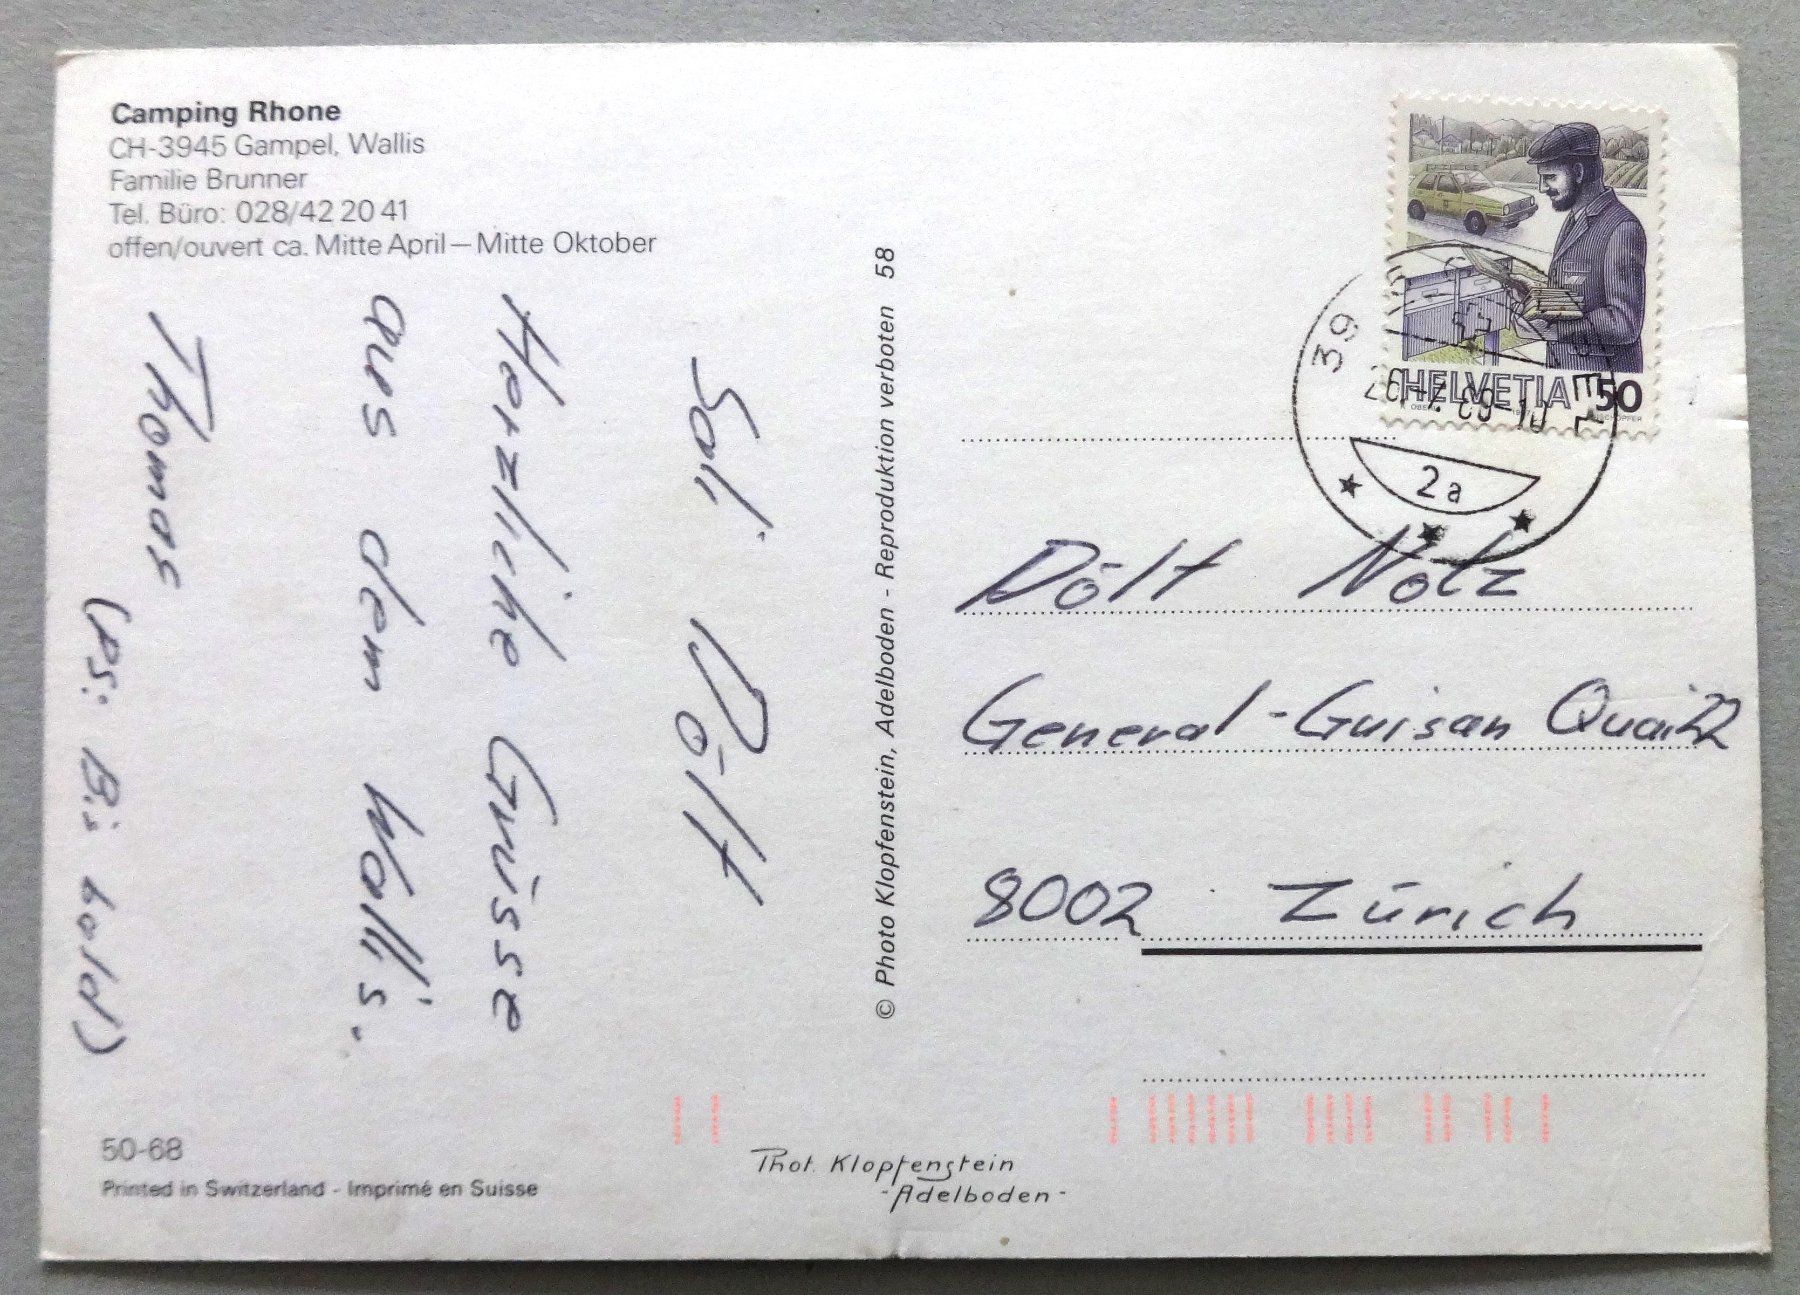 Camping Rhone
CH-3945 Gampel, Wallis
Familie Brunner
Tel. Büro: 028/42 20 41
offen/ouvert ca. Mitte April — Mitte Oktober
Sali Dölf
Herzliche Grüsse
aus dem Wallis.
Thomas
(PS: Bis bald)
© Photo Klopfenstein, Adelboden - Reproduktion verboten 58
HELVETIA 50
39
26.-7.89-10
2a
Dölf Notz
General-Guisan Quai 22
8002 Zürich
50-68
Printed in Switzerland - Imprimé en Suisse
Phot. Klopfenstein
-Adelboden-